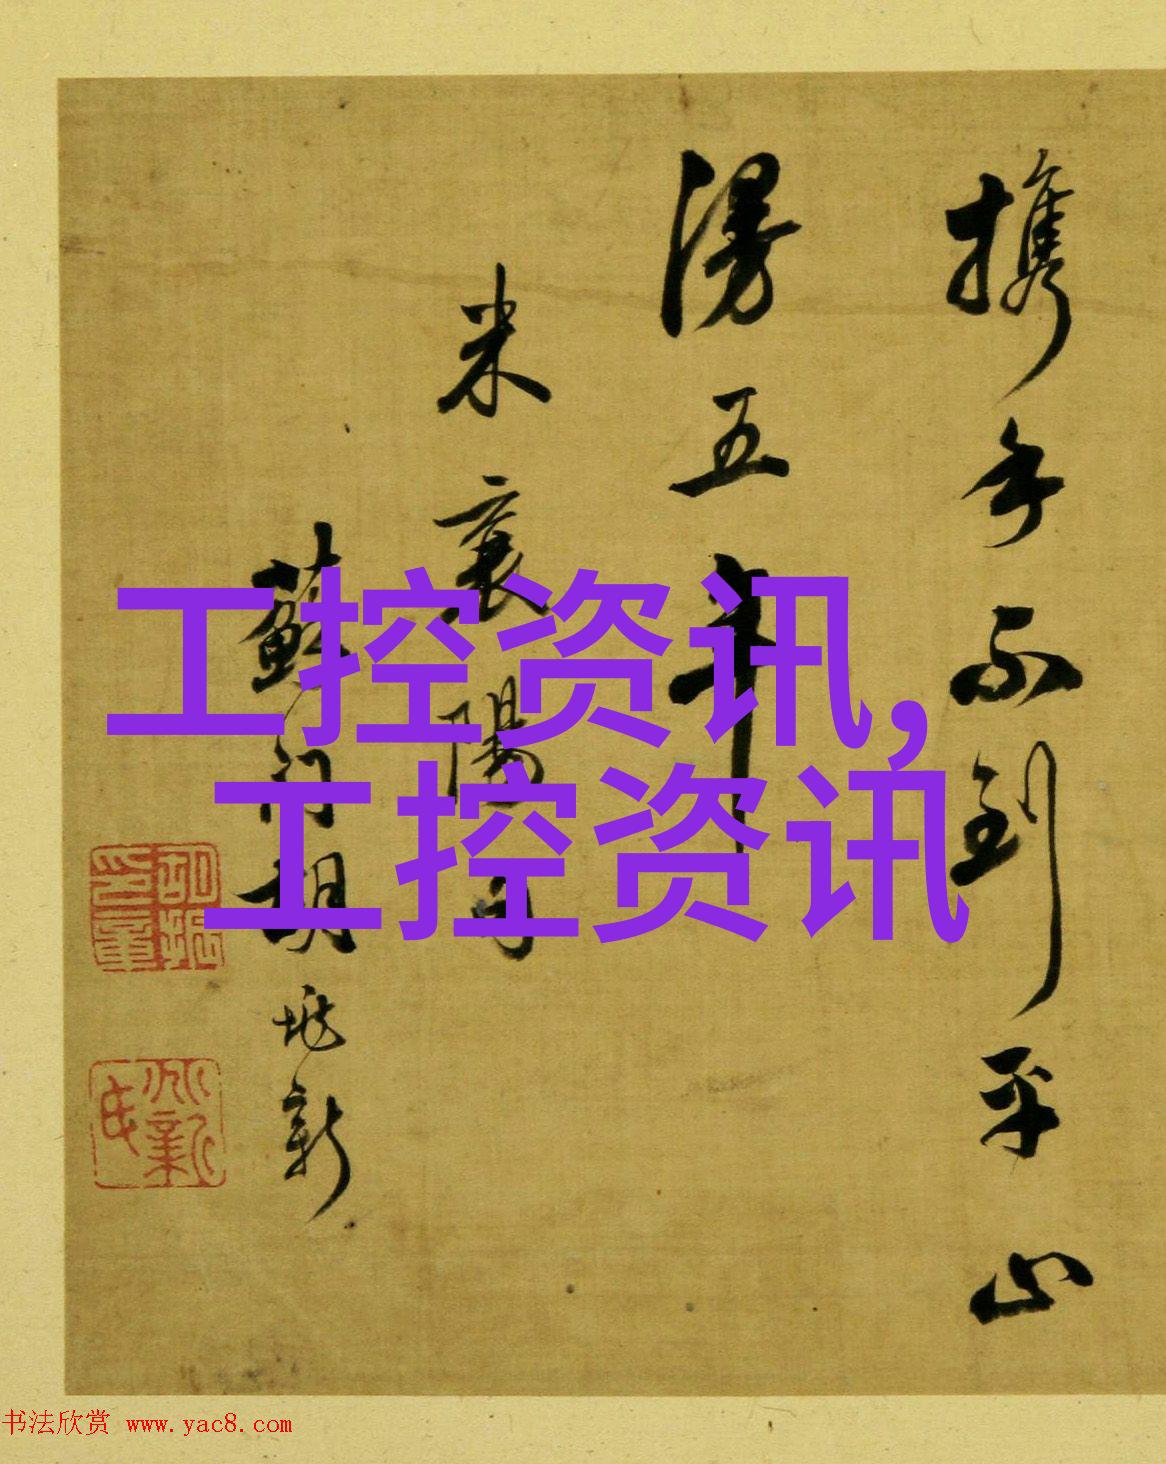 携手不到平山
漫五年
米襄陽
蘇門胡垗新
工控资讯,
工控资讯
书法欣赏 www.yac8.com